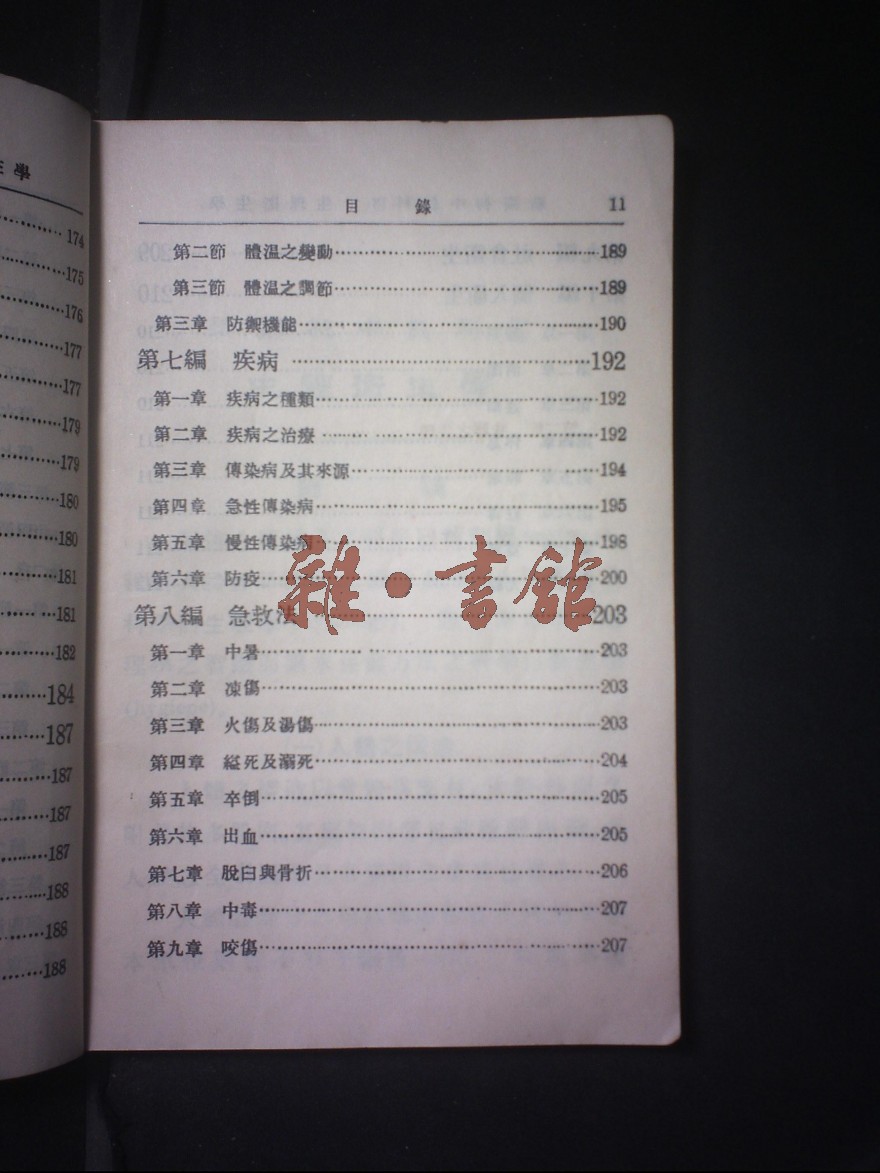 學
174
175
176
177
177
179
179
180
180
181
181
182
184
187
187
187
187
188
188
188
目 錄 11
第二節 體温之變動 189
第三節 體温之調節 189
第三章 防禦機能 190
第七編 疾病 192
第一章 疾病之種類 192
第二章 疾病之治療 192
第三章 傳染病及其來源 194
第四章 急性傳染病 195
第五章 慢性傳染病 198
第六章 防疫 200
第八編 急救法 203
第一章 中暑 203
第二章 凍傷 203
第三章 火傷及湯傷 203
第四章 縊死及溺死 204
第五章 卒倒 205
第六章 出血 205
第七章 脫臼與骨折 206
第八章 中毒 207
第九章 咬傷 207
雜·書館